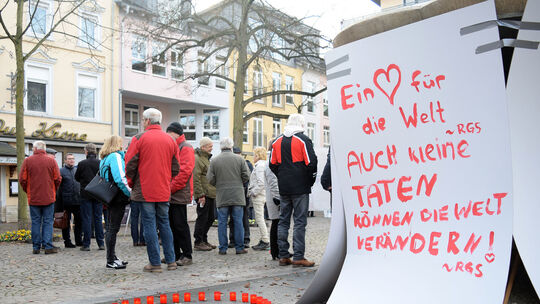 Ein ♥ für
die Welt
~RGS
AUCH kleine
TATEN
KÖNNEN DIE WELT
VERÄNDERN!
~RGS♥